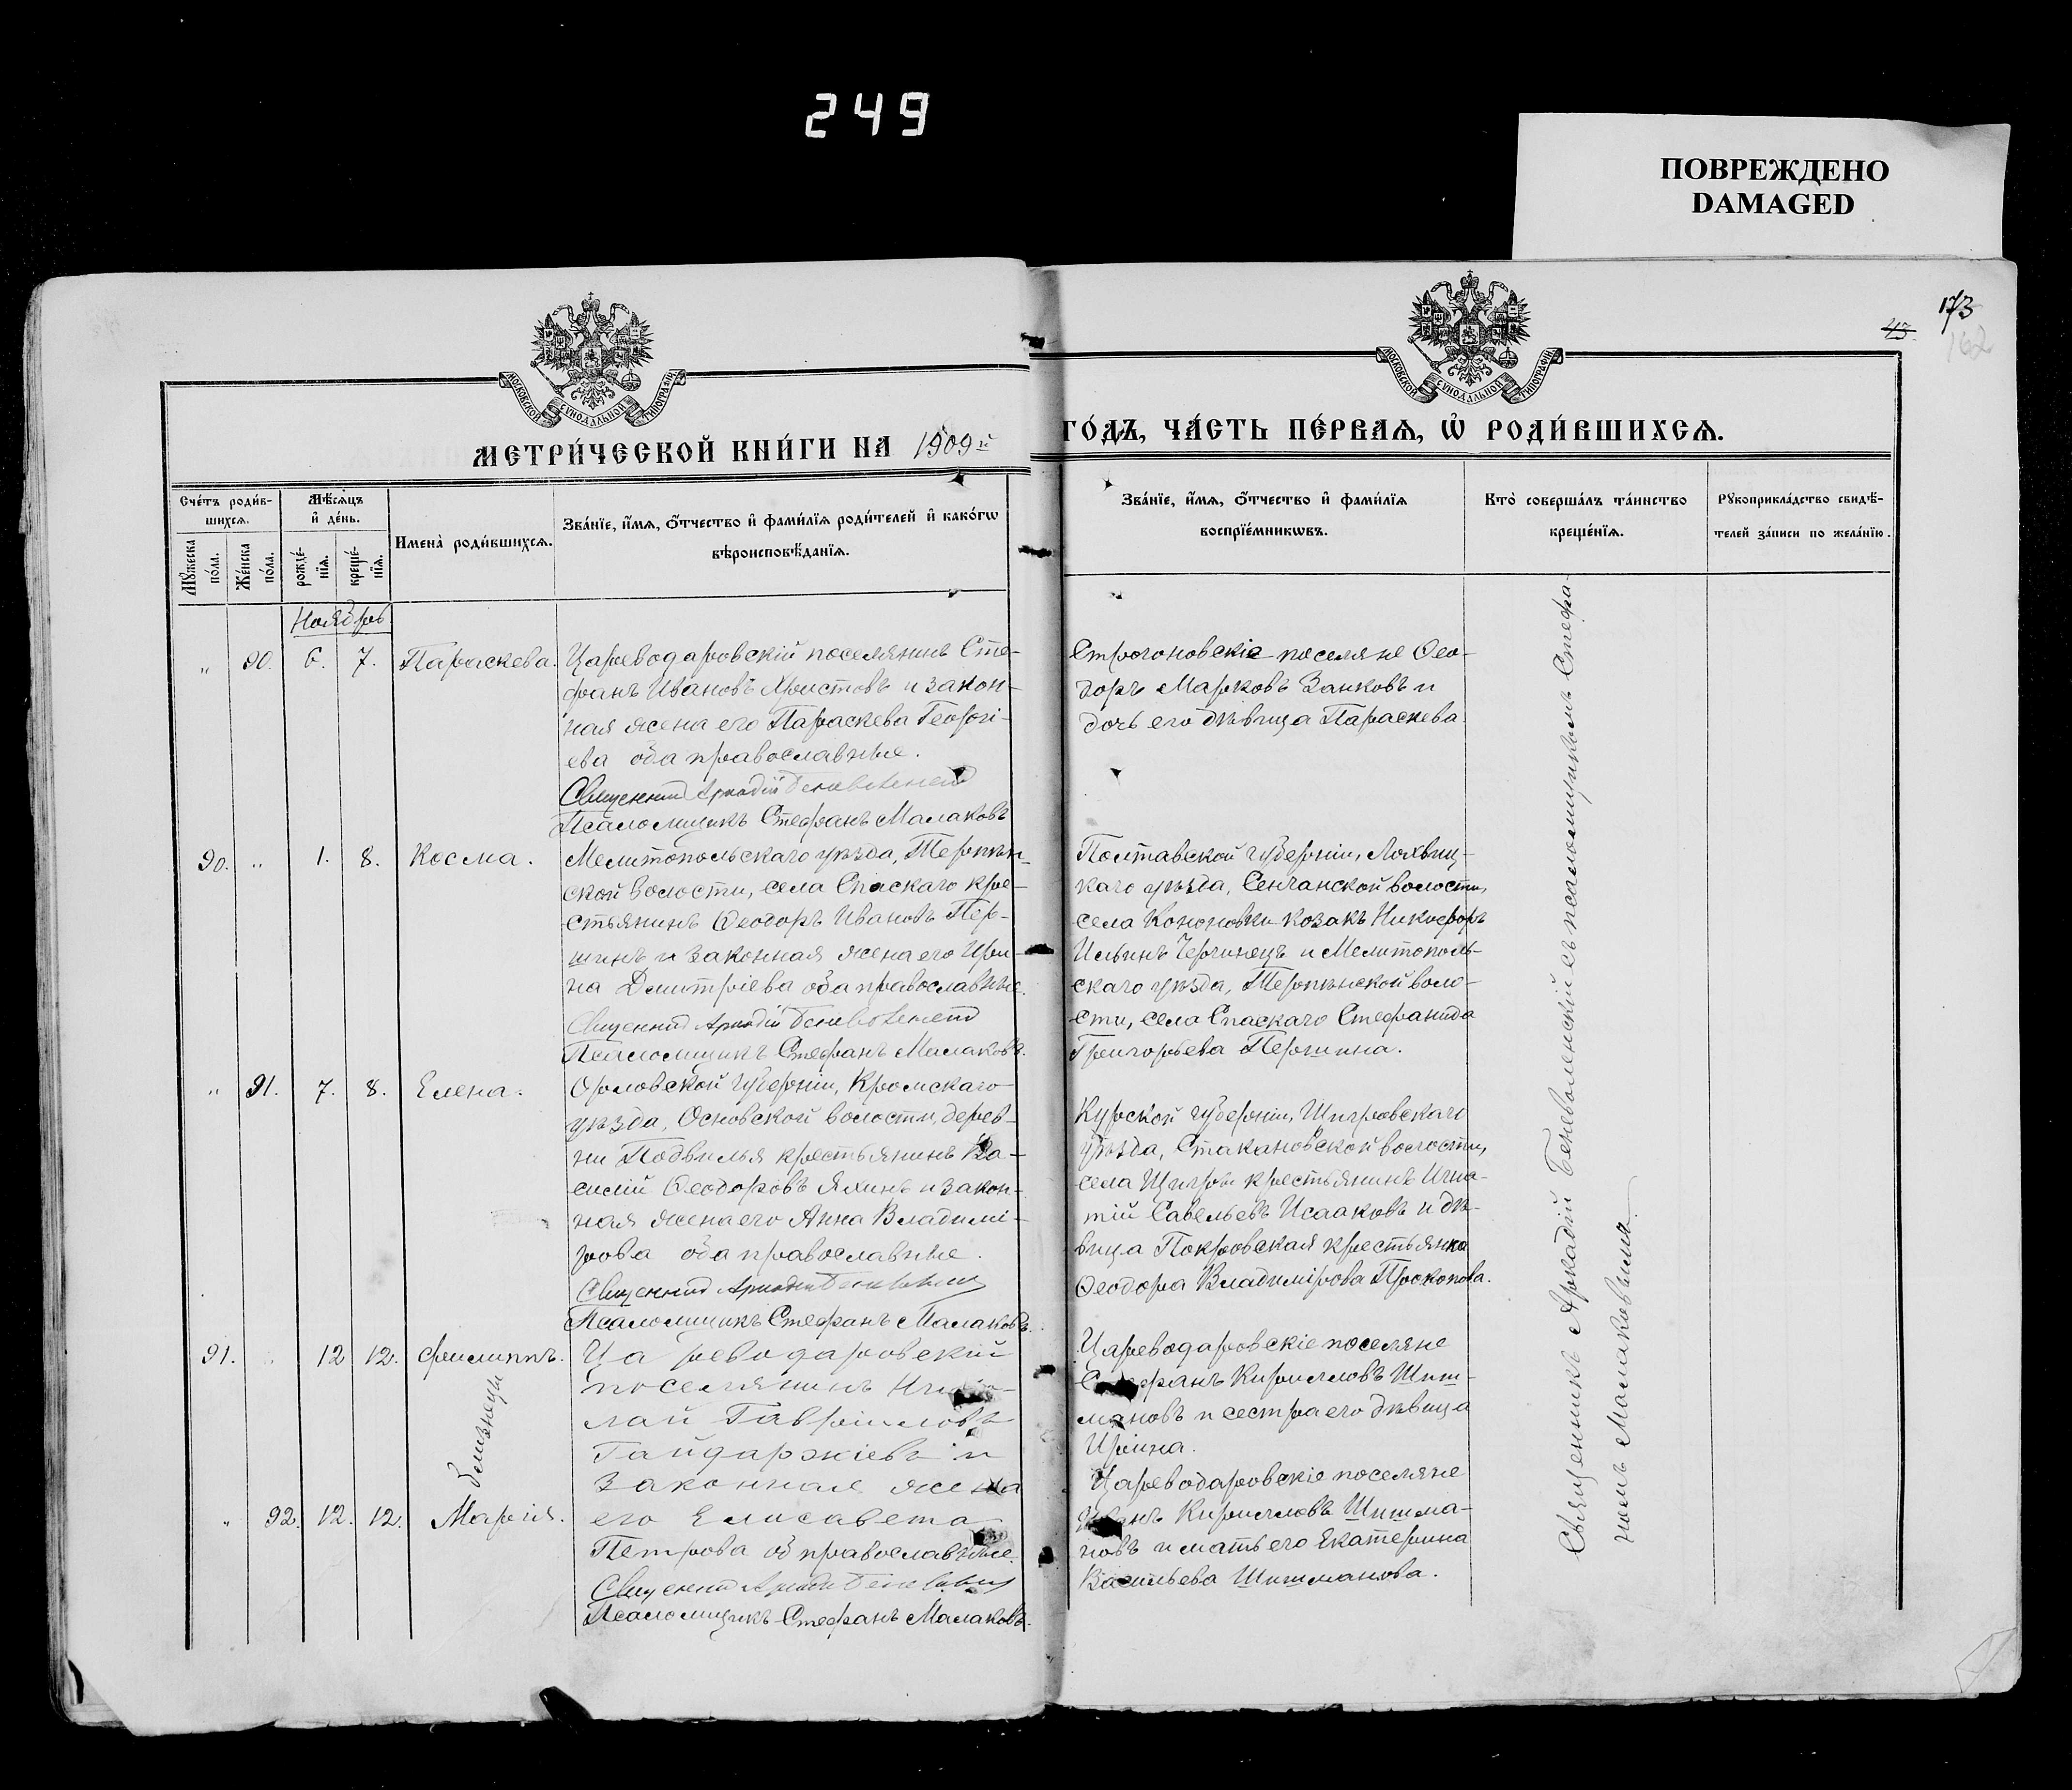 249
ПОВРЕЖДЕНО
DAMAGED
173
43.
162
МОСКОВСКОЙ СУНОДАЛЬНОЙ ТИПОГРАФІИ
МОСКОВСКОЙ СУНОДАЛЬНОЙ ТИПОГРАФІИ
МЕТРИ́ЧЕСКОЙ КНИ́ГИ НА 1909й ГО́ДЪ, ЧА́СТЬ ПЕ́РВАѦ, Ѡ҆ РОДИ́ВШИХСѦ.
Сче́тъ роди́в-
шихсѧ.
Мѣ́сѧцъ
и҆ де́нь.
Мꙋ́жеска
по́ла.
Же́нска
по́ла.
рожде́-
нїѧ.
креще́-
нїѧ.
Имена̀ роди́вшихсѧ.
Зва́нїе, и҆́мѧ, ѻ҆́тчество и҆ фами́лїѧ роди́телей и҆ како́гѡ
вѣроисповѣ́данїѧ.
Зва́нїе, и҆́мѧ, ѻ҆́тчество и҆ фами́лїѧ
воспрїе́мникѡвъ.
Кто̀ соверша́лъ та́инство
креще́нїѧ.
Рꙋкоприкла́дство свидѣ́-
телей за́писи по жела́нїю.
Ноябрь
" 90. 6. 7. Параскева.
Цареводаровскій поселянинъ Сте-
фанъ Ивановъ Христовъ и закон-
ная жена его Параскева Георгі-
ева оба православные.
Священник Аркадій Беневоленскій
Псаломщикъ Стефанъ Малаковъ
Строгоновскіе поселяне Ѳео-
доръ Марковъ Занковъ и
дочь его дѣвица Параскева
90. " 1. 8. Косма.
Мелитопольскаго уѣзда, Терпѣн-
ской волости, села Спаскаго кре-
стьянинъ Ѳеодоръ Ивановъ Пер-
шинъ и законная жена его Ири-
на Дмитріева оба православные.
Священник Аркадій Беневоленскій
Псаломщикъ Стефанъ Малаковъ.
Полтавской губерніи, Лохвиц-
каго уѣзда, Сенчанской волости,
села Кононовки козакъ Никифоръ
Ильинъ Черчинецъ и Мелитополь-
скаго уѣзда, Терпѣнской воло-
сти, села Спаскаго Стефанида
Григорьева Першина.
" 91. 7. 8. Елена.
Орловской губерніи, Кромскаго
уѣзда, Основской волости, дерев-
ни Подвилья крестьянинъ Ва-
силій Ѳеодоровъ Яхинъ и закон-
ная жена его Анна Владимі-
рова оба православные.
Священник Аркадій Беневоленскій
Псаломщикъ Стефанъ Малаковъ.
Курской губерніи, Щигровскаго
уѣзда, Стакановской волости,
села Щигры крестьянинъ Игна-
тій Савельевъ Исааковъ и дѣ-
вица Покровская крестьянка
Ѳеодора Владимірова Прокопова.
91. " 12 12. Филиппъ.
близнецы
" 92. 12. 12. Марія.
Цареводаровскій
поселянинъ Нико-
лай Гавріиловъ
Гайдаржіевъ и
законная жена
его Елисавета
Петрова об православные.
Священник Аркадій Беневоленскій
Псаломщикъ Стефанъ Малаковъ.
Цареводаровскіе поселяне
Стефанъ Кирилловъ Шиш-
мановъ и сестра его дѣвица
Ирина.
Цареводаровскіе поселяне
Иванъ Кирилловъ Шишма-
новъ и мать его Екатерина
Васильева Шишманова.
Священникъ Аркадій Беневоленскій съ псаломщикомъ Стефа-
номъ Малаковымъ